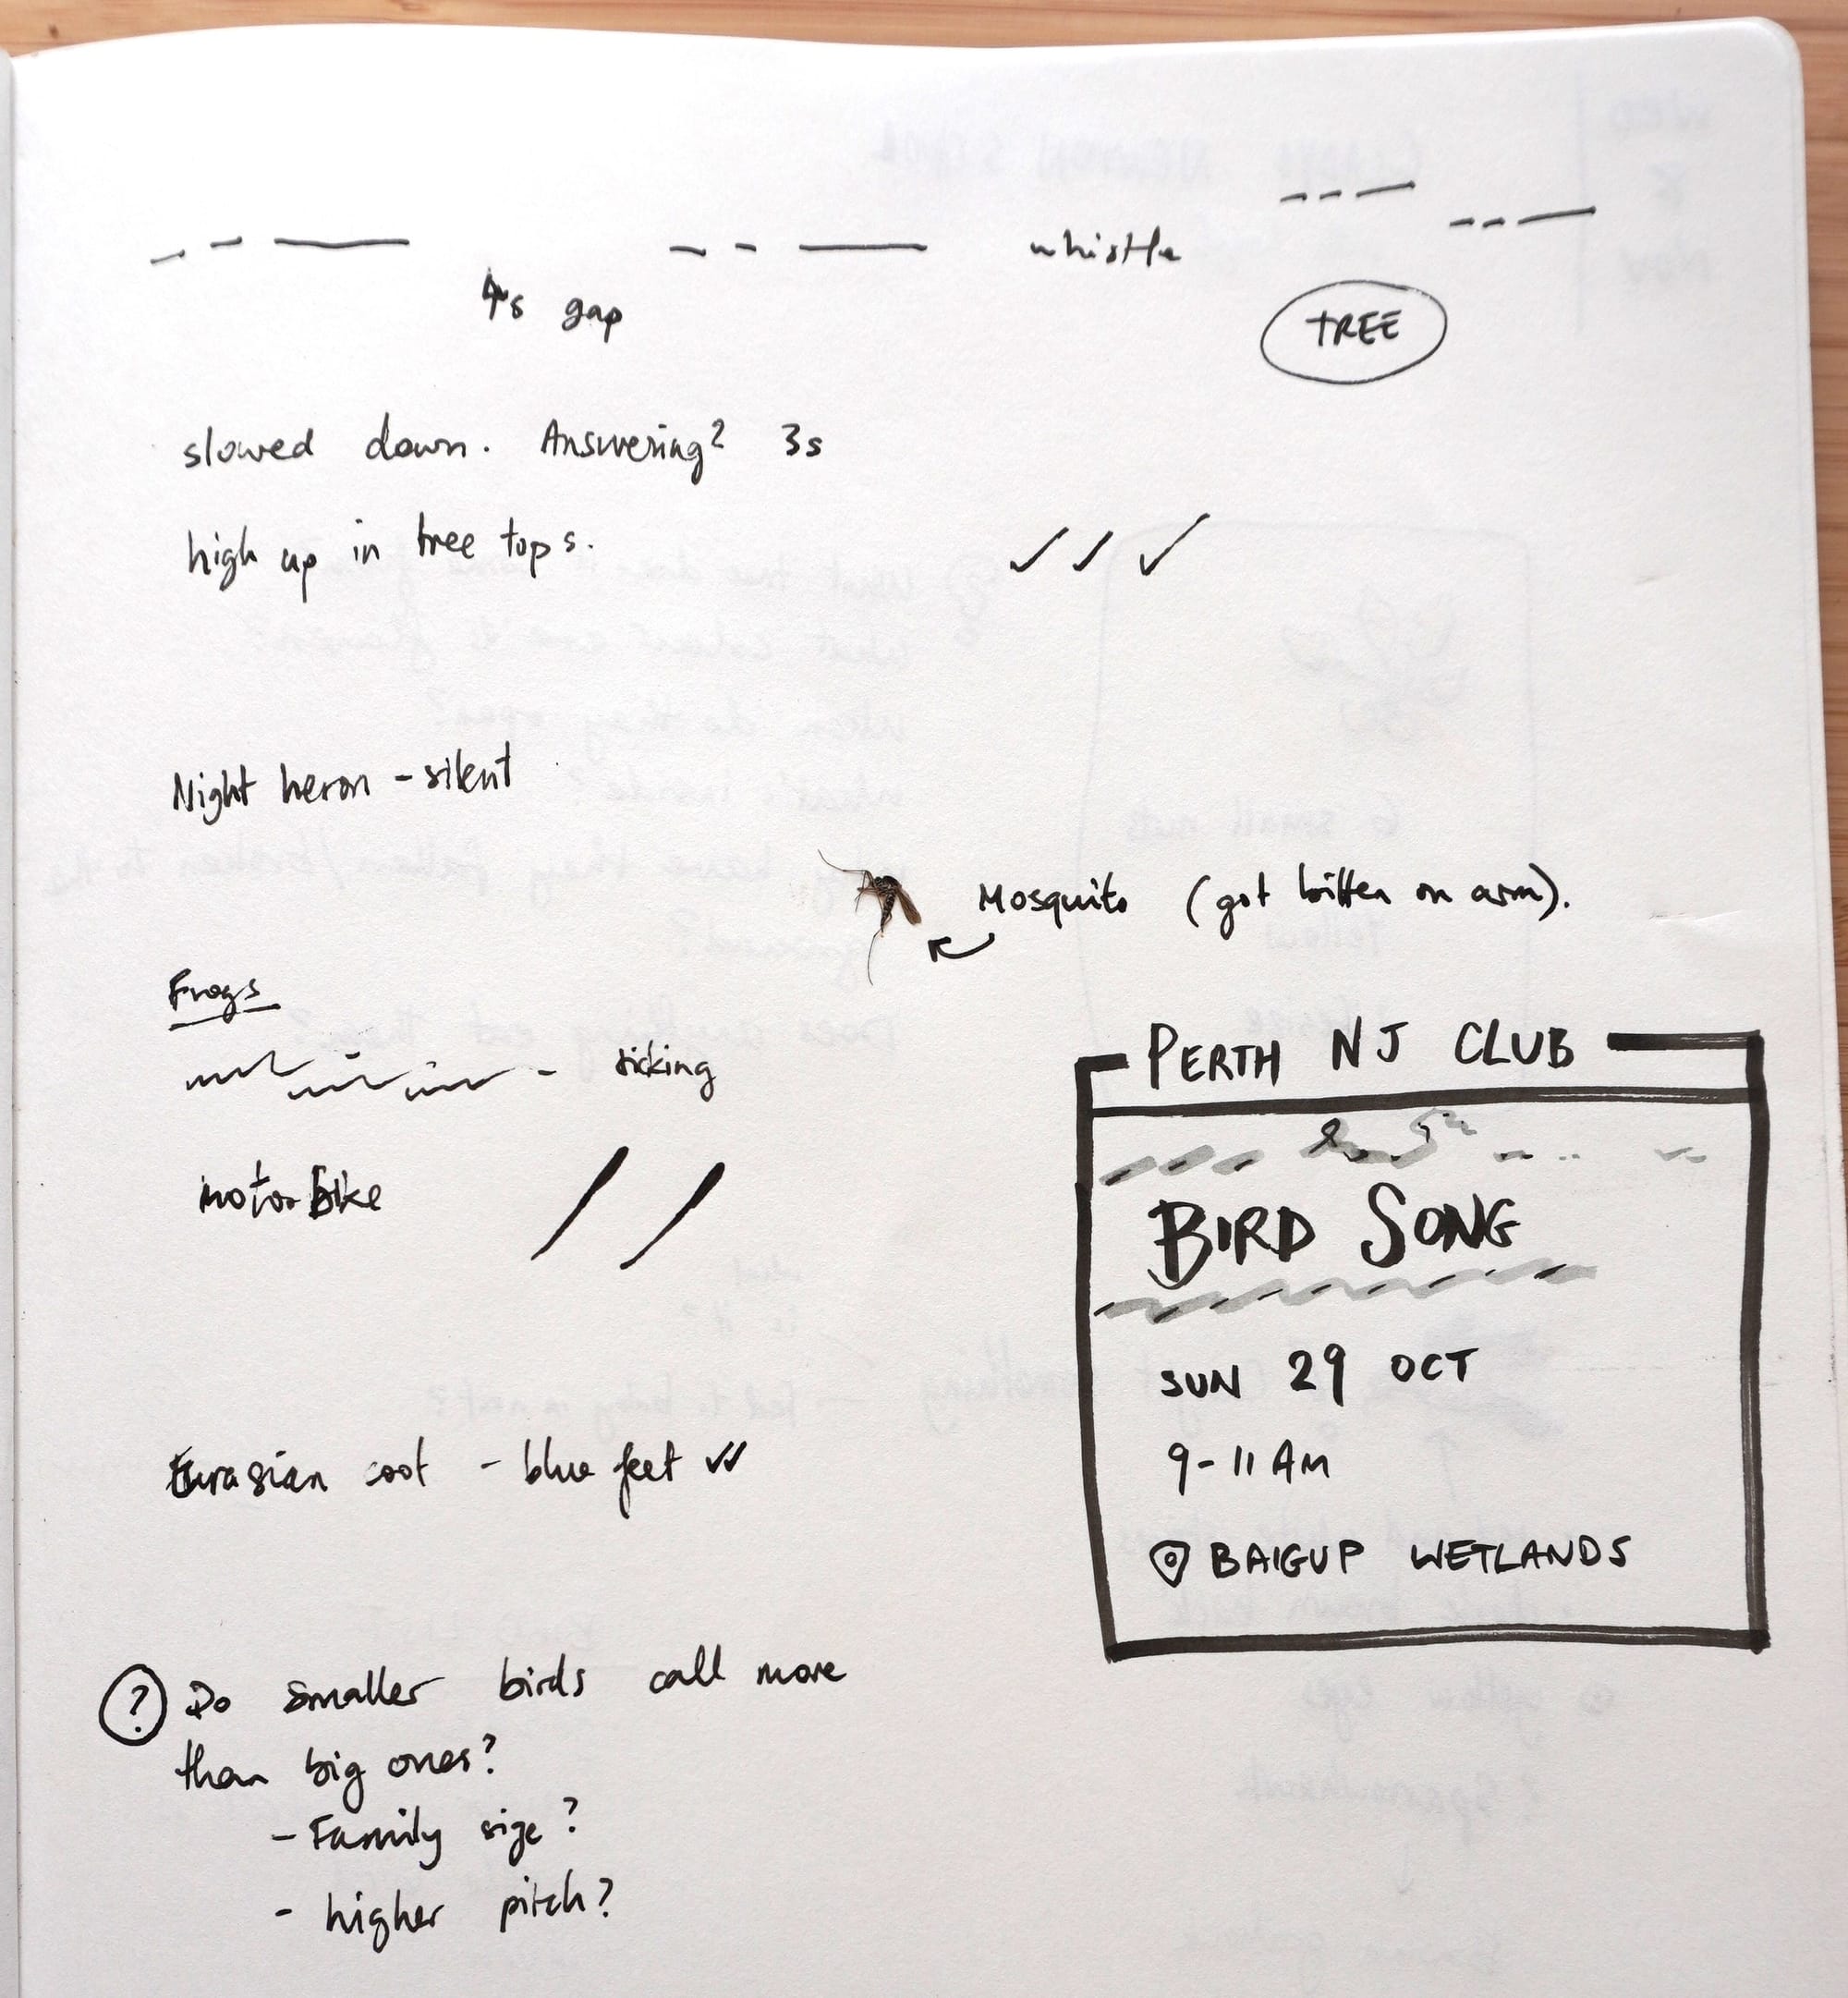 whistle
4s gap
TREE
slowed down. Answering? 3s
high up in tree tops.
Night heron - silent
Mosquito (got bitten on arm).
Frogs
ticking
motorbike
Eurasian coot - blue feet
? Do smaller birds call more
than big ones?
- Family size?
- higher pitch?
PERTH NJ CLUB
BIRD SONG
SUN 29 OCT
9-11 AM
BAIGUP WETLANDS